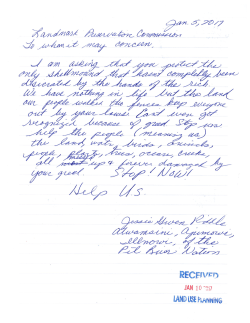 Jan 5, 2017
Landmark Preservation Commission
To whom it may concern,
I am asking that you protect the
only shellmound that hasn't completely been
desecrated by the hands of the rich.
We have nothing in life but this land
our people within the fences keep everyone
out by your laws Can't even get
recognized because of greed Stop now
help the people (meaning us)
the land, water, birds, animals,
people, plants, trees, ocean, creeks,
all up & forever damaged by
your greed. Stop! Now!!
Help Us.
of the
RECEIVED
JAN 10
LAND USE PLANNING